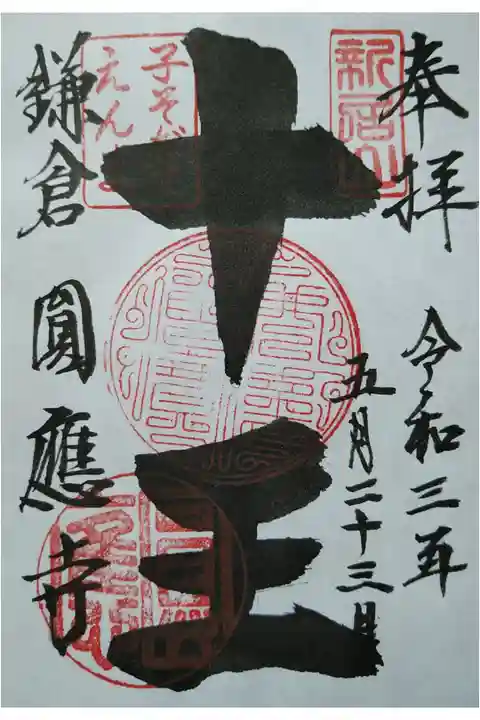 奉拝
新居山
令和三年
五月二十三日
十王
子そだて
えんま
鎌倉 圓應寺